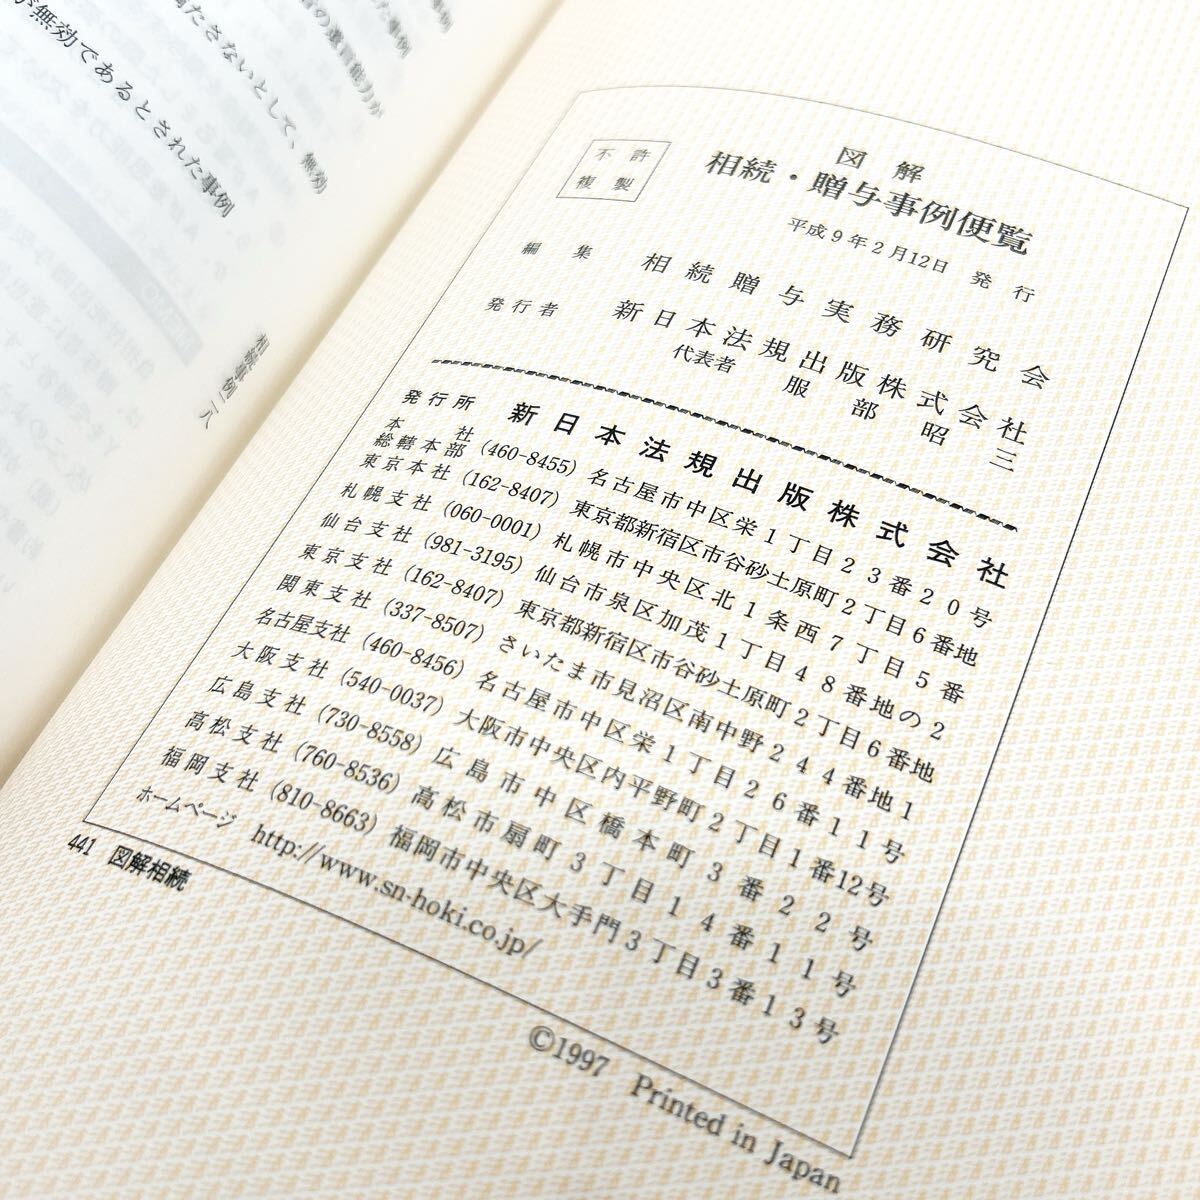 が無効であるとされた事例
相続事例 一八
不許
複製
図解
相続・贈与事例便覧
平成9年2月12日 発行
編集 相続贈与実務研究会
発行者 新日本法規出版株式会社
代表者 服部昭三
発行所 新日本法規出版株式会社
本社
総轄本部 (460-8455) 名古屋市中区栄1丁目23番20号
東京本社 (162-8407) 東京都新宿区市谷砂土原町2丁目6番地
札幌支社 (060-0001) 札幌市中央区北1条西7丁目5番
仙台支社 (981-3195) 仙台市泉区加茂1丁目48番地の2
東京支社 (162-8407) 東京都新宿区市谷砂土原町2丁目6番地
関東支社 (337-8507) さいたま市見沼区南中野244番地1
名古屋支社 (460-8456) 名古屋市中区栄1丁目26番11号
大阪支社 (540-0037) 大阪市中央区内平野町2丁目1番12号
広島支社 (730-8558) 広島市中区橋本町3番22号
高松支社 (760-8536) 高松市扇町3丁目14番11号
福岡支社 (810-8663) 福岡市中央区大手門3丁目3番13号
ホームページ http://www.sn-hoki.co.jp/
441 図解相続
©1997 Printed in Japan